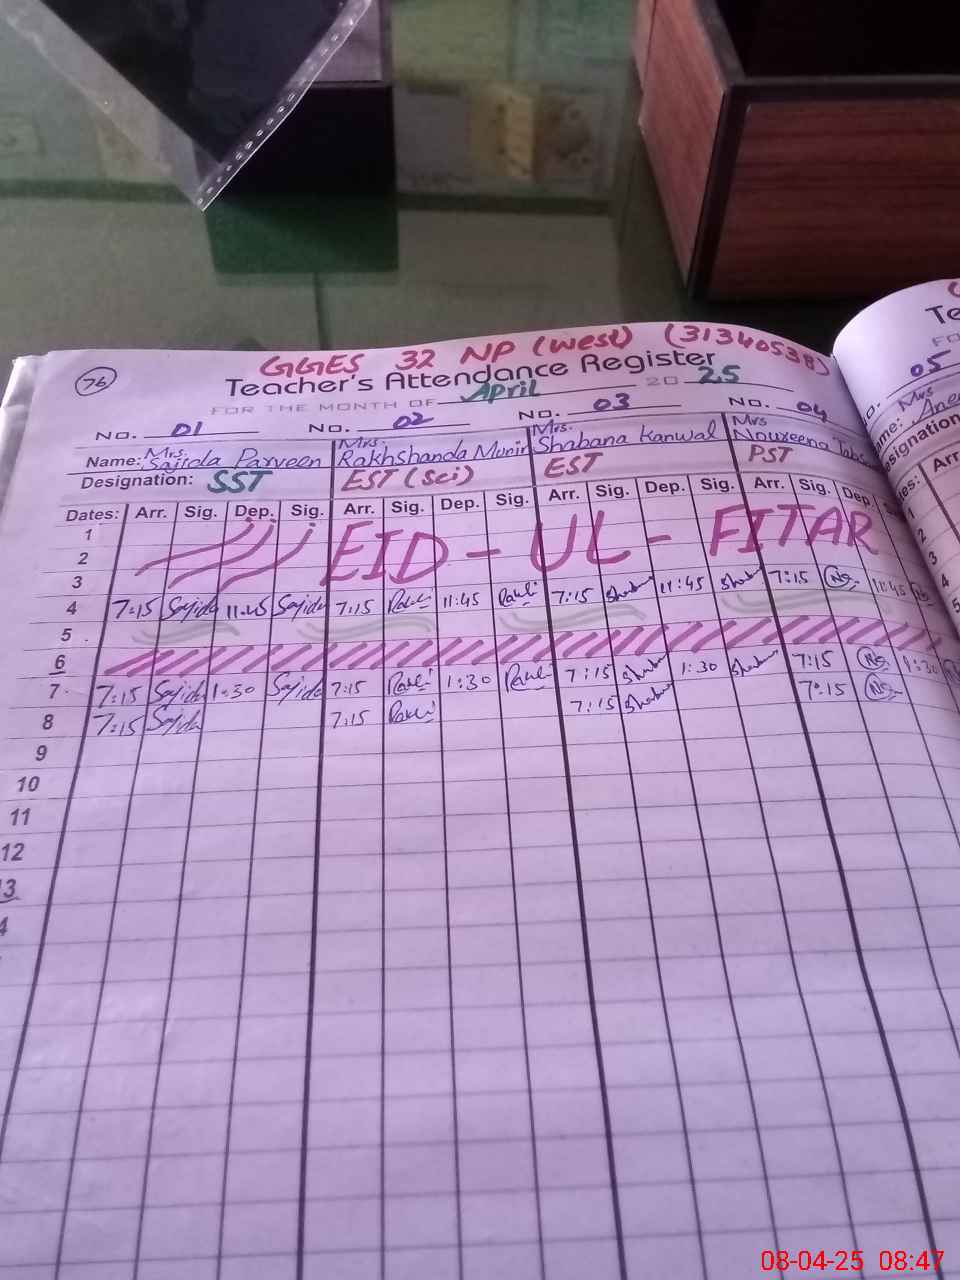 GGES 32 NP (West) (31340538)
76 Teacher's Attendance Register
FOR THE MONTH OF April 20 25
No. 01 No. 02 No. 03 No. 04
Name: Mrs. Sajida Parveen Mrs. Rakhshanda Munir Mrs. Shabana Kanwal Mrs Noureena
Designation: SST EST (Sci) EST PST
Dates: Arr. Sig. Dep. Sig. Arr. Sig. Dep. Sig. Arr. Sig. Dep. Sig. Arr. Sig. Dep.
1
2 EID - UL - FITAR
3
4 7:15 Sajida 11:45 Sajida 7:15 11:45 7:15 11:45 7:15 11:45
5
6
7 7:15 Sajida 1:30 Sajida 7:15 1:30 7:15 1:30 7:15 1:30
8 7:15 Sajida 7:15 7:15 7:15
9
10
11
12
13
05
Mrs
Arr.
1
2
3
4
5
08-04-25 08:47